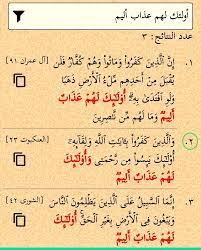 أولئك لهم عذاب أليم
عدد النتائج: ٣
١. إِنَّ الَّذِينَ كَفَرُوا وَمَاتُوا وَهُمْ كُفَّارٌ فَلَن [آل عمران ٩١]
يُقْبَلَ مِنْ أَحَدِهِم مِّلْءُ الْأَرْضِ ذَهَبًا
وَلَوِ افْتَدَىٰ بِهِ ۗ أُولَٰئِكَ لَهُمْ عَذَابٌ
أَلِيمٌ وَمَا لَهُم مِّن نَّاصِرِينَ
٢. وَالَّذِينَ كَفَرُوا بِآيَاتِ اللَّهِ وَلِقَائِهِ [العنكبوت ٢٣]
أُولَٰئِكَ يَئِسُوا مِن رَّحْمَتِي وَأُولَٰئِكَ
لَهُمْ عَذَابٌ أَلِيمٌ
٣. إِنَّمَا السَّبِيلُ عَلَى الَّذِينَ يَظْلِمُونَ النَّاسَ [الشورى ٤٢]
وَيَبْغُونَ فِي الْأَرْضِ بِغَيْرِ الْحَقِّ ۚ أُولَٰئِكَ
لَهُمْ عَذَابٌ أَلِيمٌ